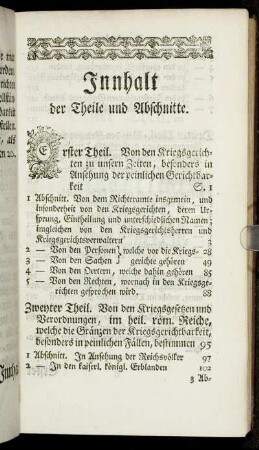 Innhalt
der Theile und Abschnitte.
Erster Theil. Von den Kriegsgerich-
ten zu unsern Zeiten, besonders in
Ansehung der peinlichen Gerichtbar-
keit S. 1
1 Abschnitt. Von dem Richteramte insgemein, und
insonderheit von den Kriegsgerichten, deren Ur-
sprung, Eintheilung und unterschiedlichen Namen;
ingleichen von den Kriegsgerichtsherren und
Kriegsgerichtsverwaltern 3
2 — Von den Personen welche vor die Kriegs- 28
3 — Von den Sachen gerichte gehören 49
4 — Von den Oertern, welche dahin gehören 85
5 — Von den Rechten, wornach in den Kriegsge-
richten gesprochen wird. 88
Zweyter Theil. Von den Kriegsgesetzen und
Verordnungen, im heil. röm. Reiche,
welche die Gränzen der Kriegsgerichtbarkeit,
besonders in peinlichen Fällen, bestimmen 95
1 Abschnitt. In Ansehung der Reichsvölker 97
2 — In den kaiserl. königl. Erblanden 102
3 Ab-